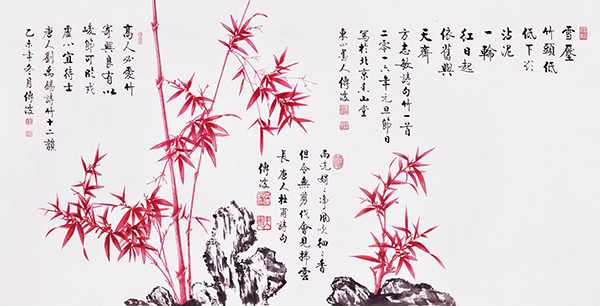 雪壓
竹頭低
低下欲
沾泥
一輪
紅日起
依舊與
天齊
方志敏詩句竹一首
二零一六年元旦節日
寫於北京香山堂
傅波
雨洗娟〻淨風吹細〻香
但令無剪伐會見拂雲
長唐人杜甫詩句
傅波
高人必愛竹
寄興良有以
峻節可臨戎
虛心宜待士
唐人劉禹錫詩竹十二韻
己未年冬月傅波